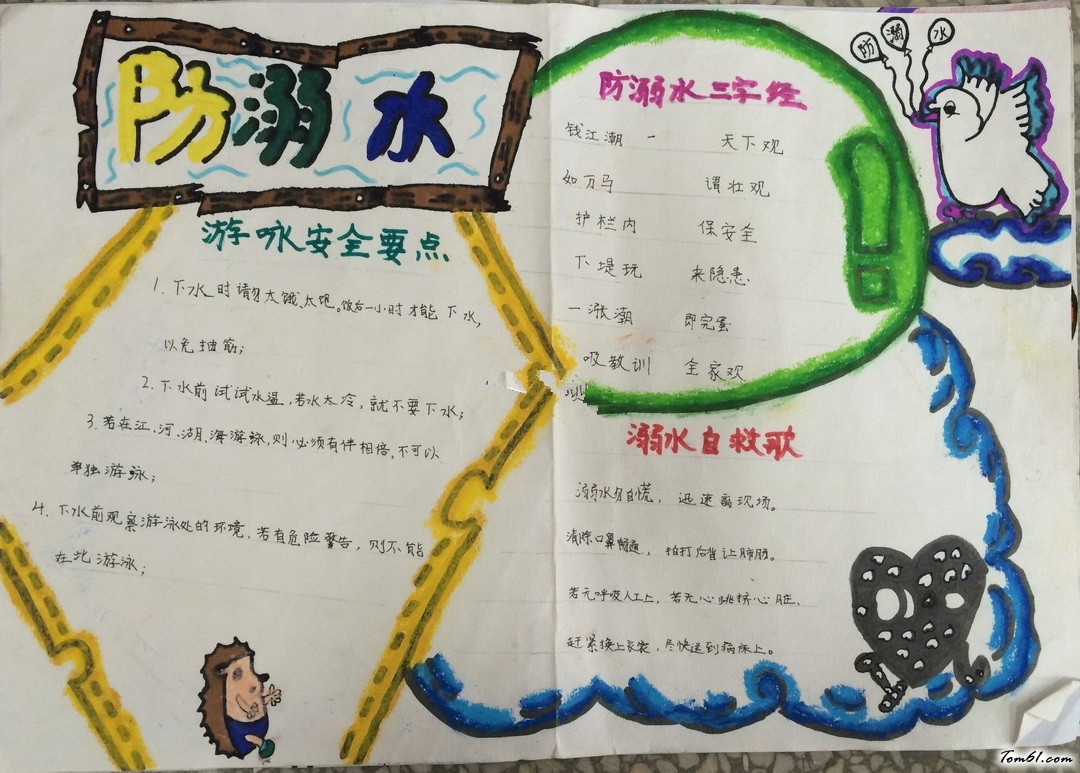 防溺水
防溺水
游泳安全要点
1. 下水时请勿太饿、太饱。饭后一小时才能下水,
以免抽筋;
2. 下水前试试水温,若水太冷,就不要下水;
3. 若在江、河、湖、海游泳,则必须有伴相陪,不可以
单独游泳;
4. 下水前观察游泳处的环境,若有危险警告,则不能
在此游泳;
防溺水三字经
钱江潮 一 天下观
如万马 谓壮观
护栏内 保安全
下堤玩 来隐患
一涨潮 即完蛋
吸教训 全家欢
溺水自救歌
溺水勿自慌, 迅速离现场。
清除口鼻畅通, 拍打后背让肺肠。
若无呼吸人工上, 若无心跳挤心脏,
赶紧换上衣裳, 尽快送到病床上。
Tom61.com